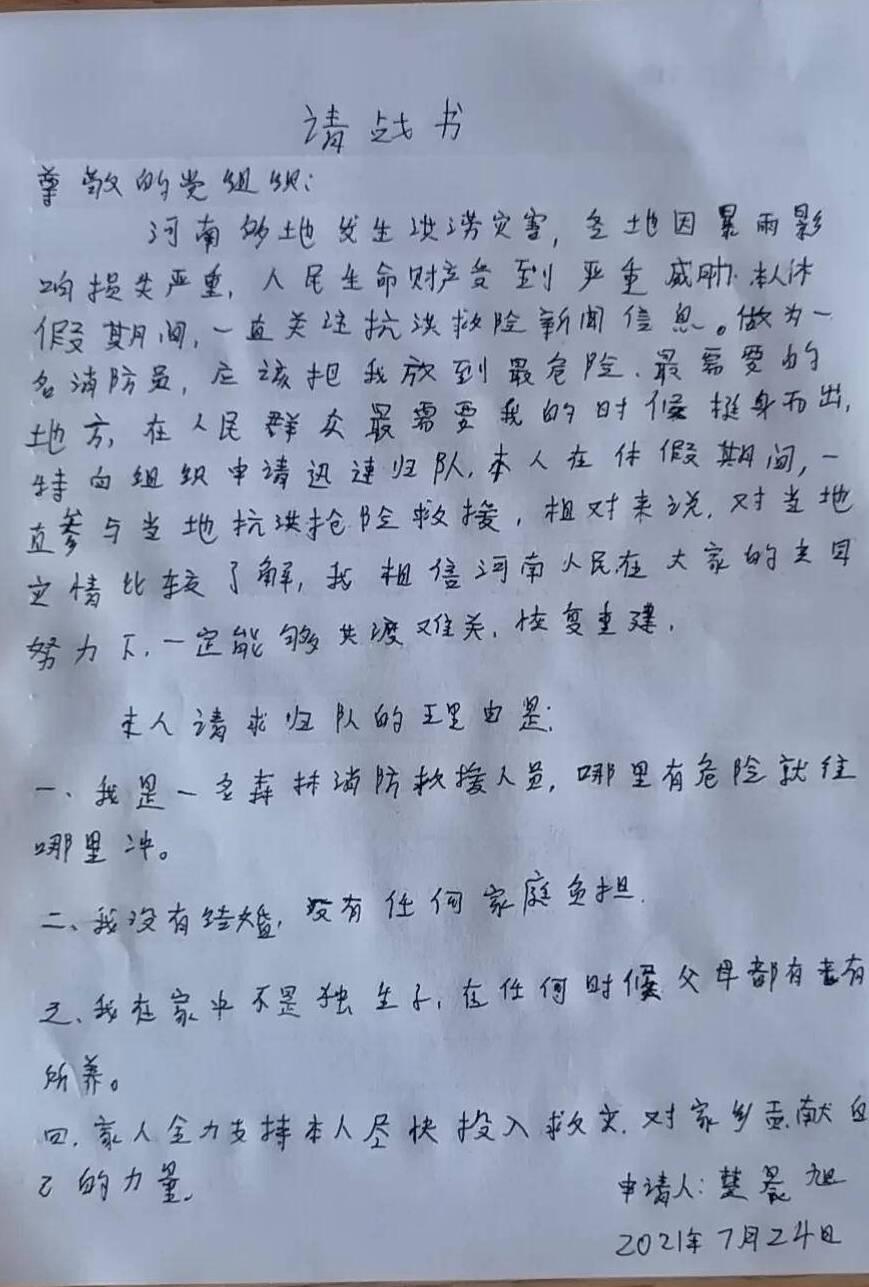 请战书
尊敬的党组织：
河南多地发生洪涝灾害，各地因暴雨影
响损失严重，人民生命财产受到严重威胁.本人休
假期间，一直关注抗洪救险新闻信息。做为一
名消防员，应该把我放到最危险、最需要的
地方，在人民群众最需要我的时候挺身而出，
特向组织申请迅速归队，本人在休假期间，一
直参与当地抗洪抢险救援，相对来说，对当地
灾情比较了解，我相信河南人民在大家的共同
努力下，一定能够共渡难关，恢复重建，
本人请求归队的理由是：
一、我是一名森林消防救援人员，哪里有危险就往
哪里冲。
二、我没有结婚，没有任何家庭负担.
三、我在家中不是独生子，在任何时候父母都有老有
所养。
四、家人全力支持本人尽快投入救灾，对家乡贡献自
己的力量.
申请人：楚晨旭
2021年7月24日